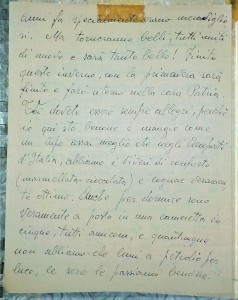 anni fa specialmente erano meraviglio
si. Ma torneranno belli, tutti uniti
di nuovo e sarà tanto bello! Finito
questo inverno, con la primavera sarà
finito e farò ritorno nella cara Patria.
Voi dovete essere sempre allegri, perchè
io qui sto benone e mangio come
un lupo assai meglio che negli
d'Italia, abbiamo i viveri di conforto
(marmellata cioccolata) e cognac
te ottimo. Anche per dormire sono
veramente a posto in una cameretta in
cinque, tutti amiconi, e quantunque
non abbiamo che lumi a petrolio per
luce, le sere le passiamo benone.